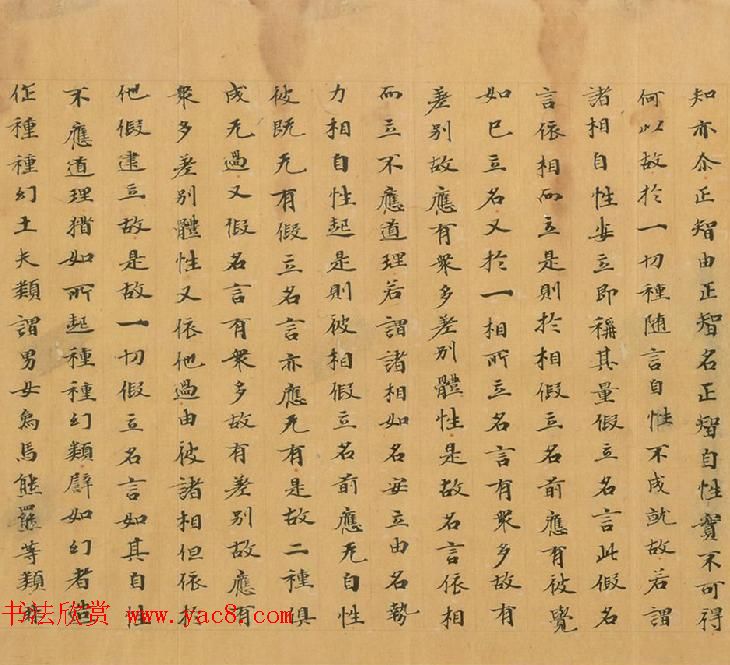 知亦尒正智由正智名正智自性實不可得
何以故於一切種随言自性不成就故若謂
諸相自性安立即稱其量假立名言此假名
言依相而立是則於相假立名前應有彼覺
如已立名又於一相所立名言有衆多故有
差別故應有衆多差別體性是故名言依相
而立不應道理若謂諸相如名安立由名勢
力相自性起是則彼相假立名前應无自性
彼既无有假立名言亦應无有是故二種俱
成无過又假名言有衆多故有差別故應有
衆多差別體性又依他過由彼諸相但依於
他假建立故是故一切假立名言如其自性
不應道理猶如所起種種幻類譬如幻者造
作種種幻士夫類謂男女為馬熊羆等類非
书法欣赏 www.yac8.com